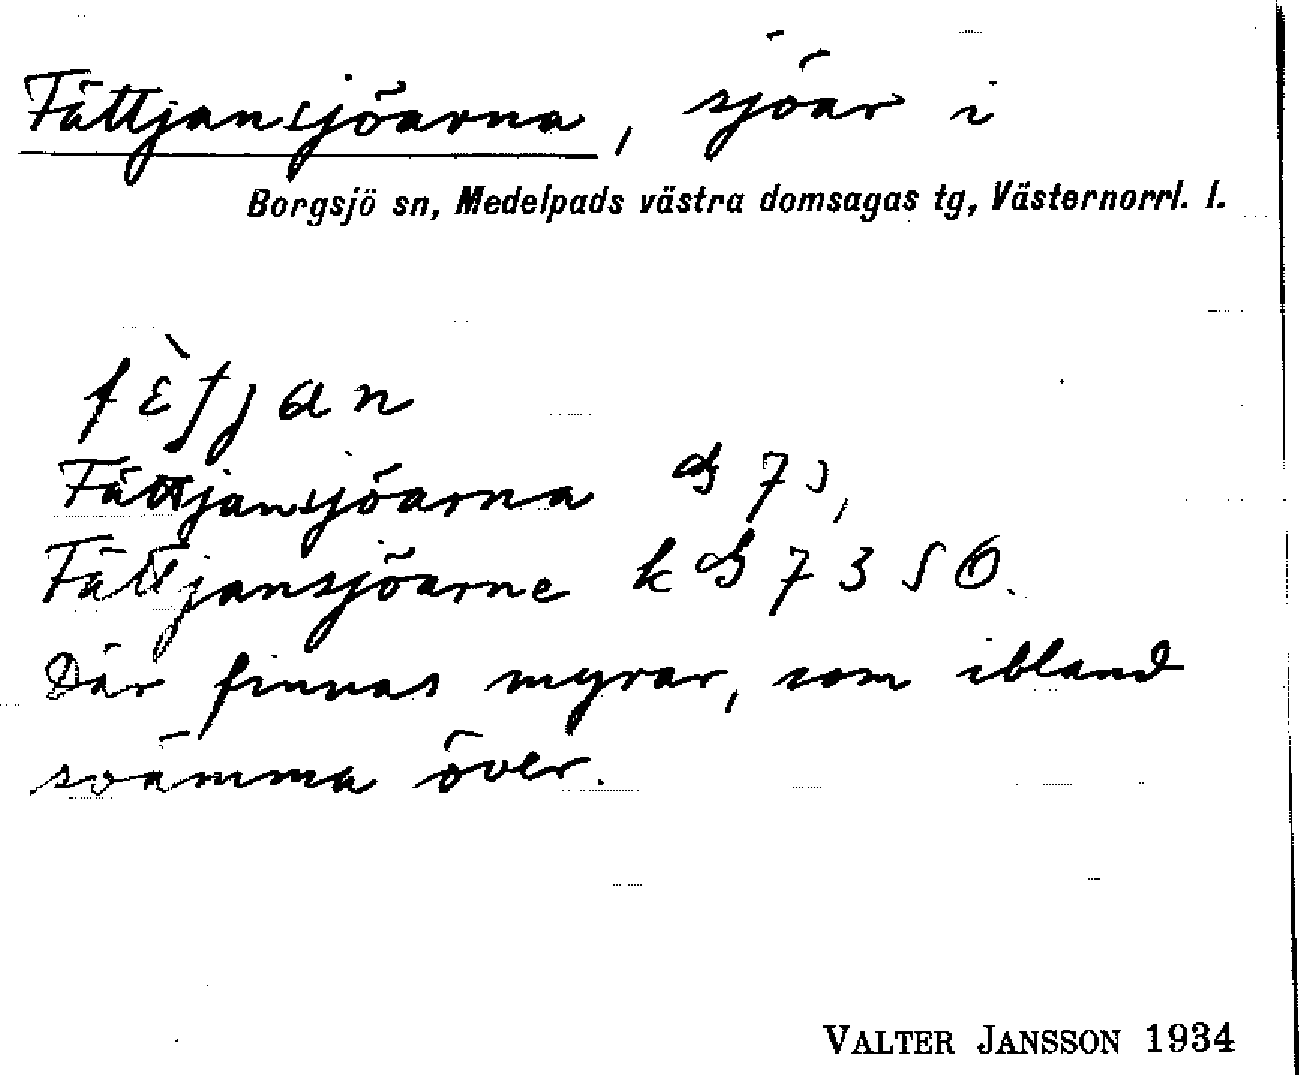 Fättjansjöarna, sjöar i
Borgsjö sn, Medelpads västra domsagas tg, Västernorrl. l.
Fättjansjöarna
Fättjansjöarne k
Där finnas myrar, som ibland
svämma över.
VALTER JANSSON 1934